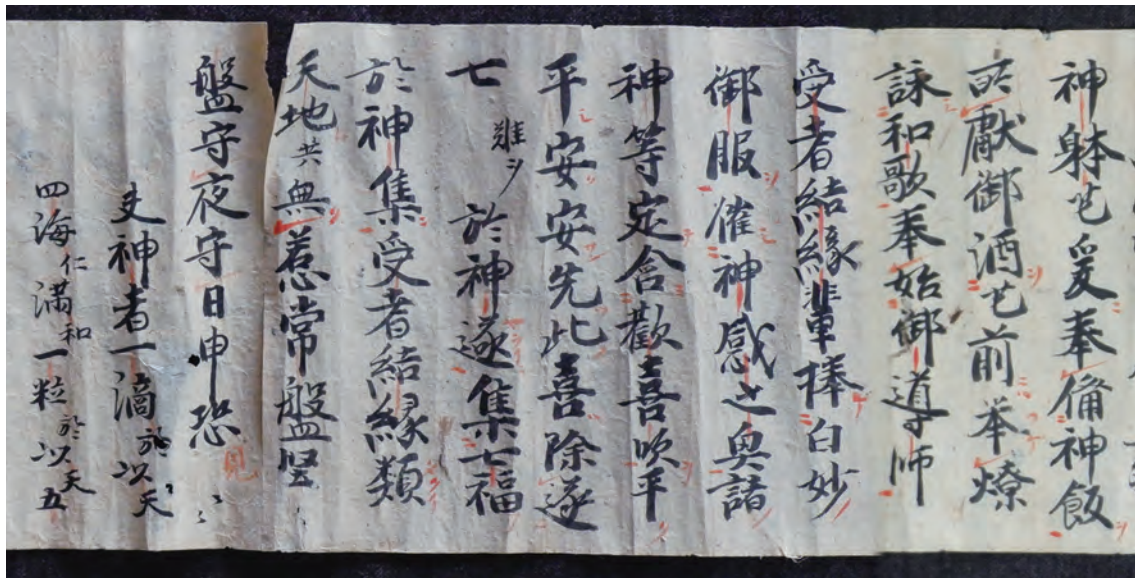 神躰弖爰奉俻神飯
所獻御酒弖前举燎
詠和歌奉始御導師
受者結縁輩捧白妙
御服催神感之奥諸
神等定會歡喜吹平
平安安先此喜除遂
七難ヲ於神遂集七福
於神集受者結縁類
天地共無恙常盤竪
盤守夜守日申恐ミ
夫神者一滴於以天
四海仁満和一粒於以天五